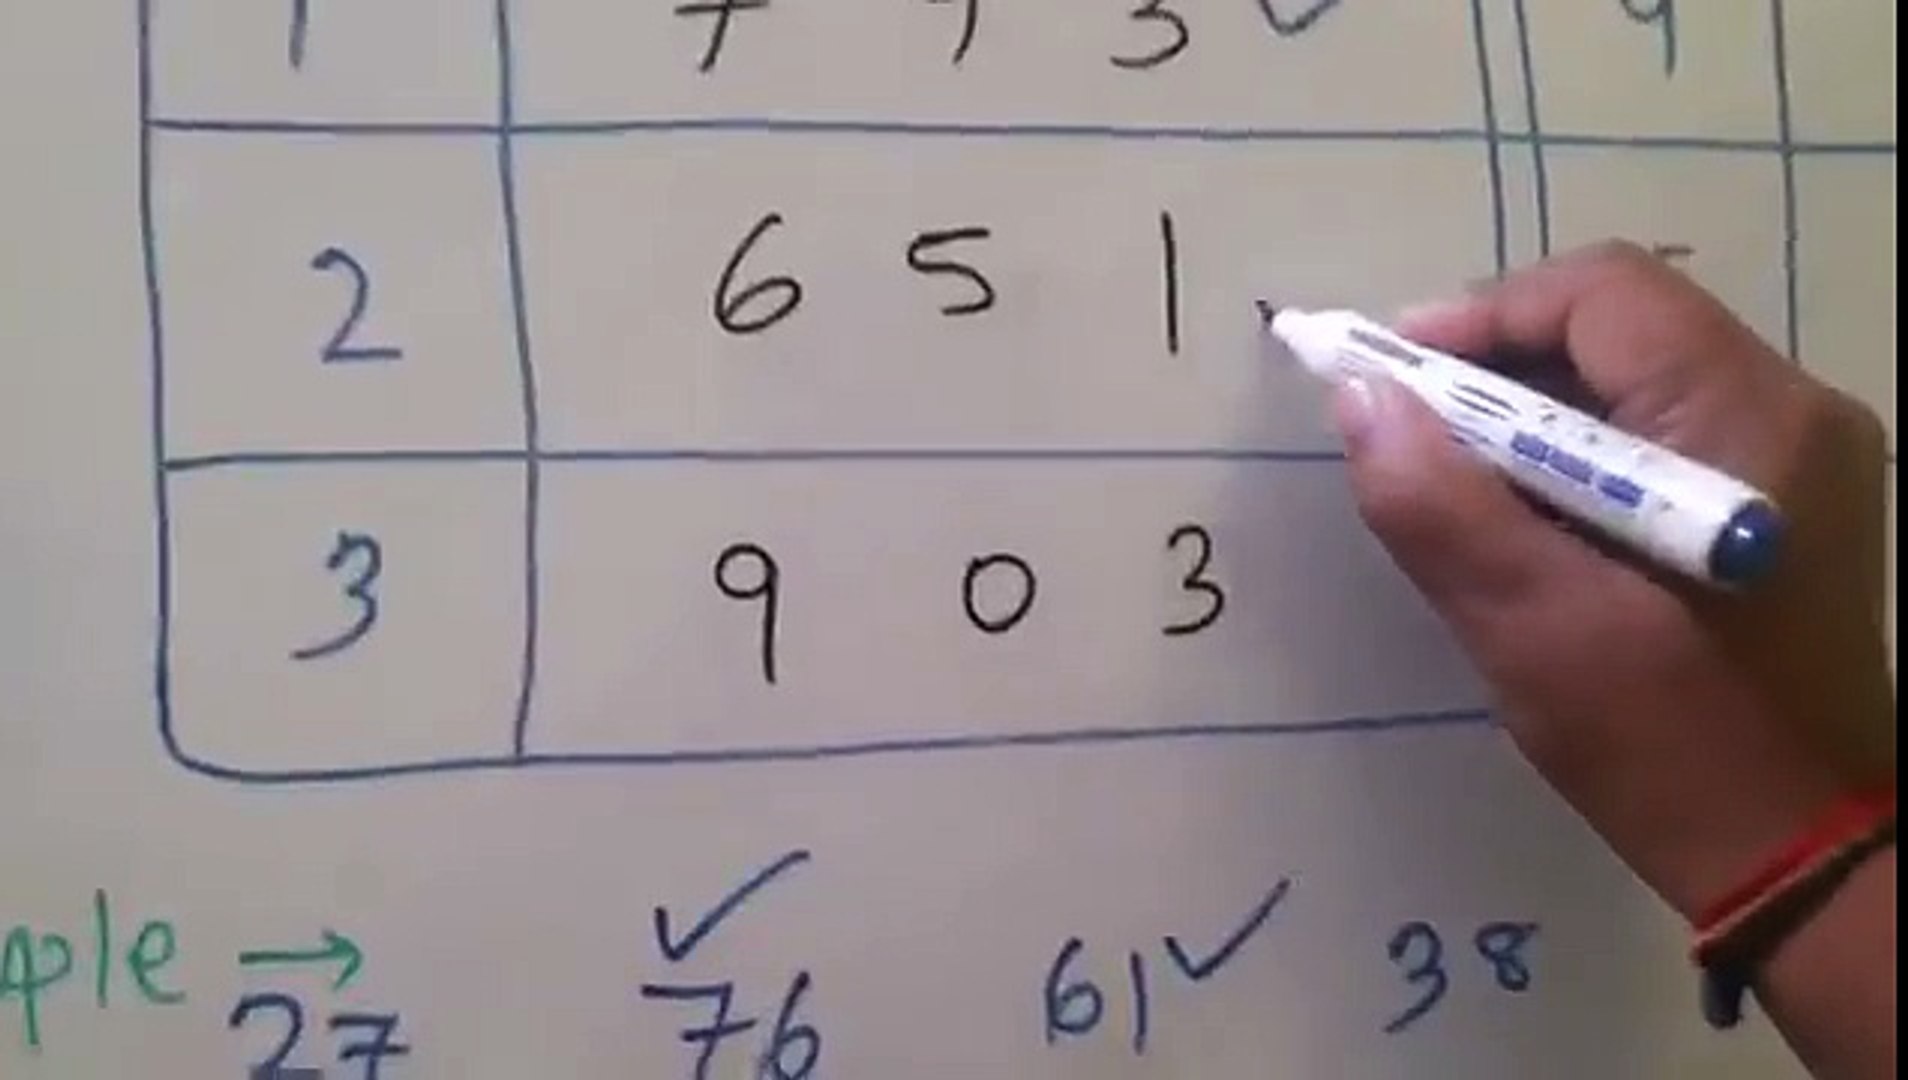 1 7 9 3 ✓ 9
2 6 5 1
3 9 0 3
ple → 27 76 ✓ 61 ✓ 38